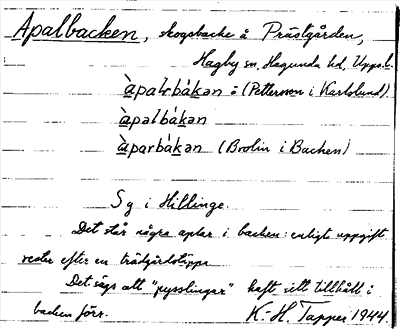 Apalbacken, skogsbacke å Prästgården,
Hagby sn, Hagunda hd, Upps. l.
àpalrbákan å (Petterson i Karlslund).
àpalbákan
àparbákan (Brolin i Backen)
S g i Hillinge.
Det står några aplar i backen: enligt uppgift
rester efter en trädgårdstäppa
Det sägs att "pysslingar" haft sitt tillhåll i
backen förr. K.-H. Tapper 1944.